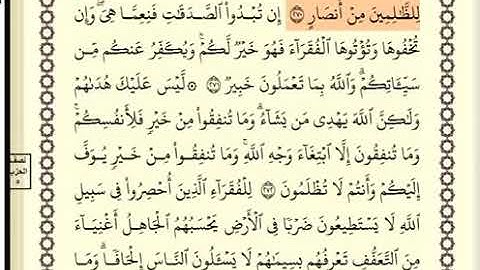 لِلظَّٰلِمِينَ مِنْ أَنصَارٍ ٢٧٠ إِن تُبْدُوا۟ ٱلصَّدَقَٰتِ فَنِعِمَّا هِىَ ۖ وَإِن
تُخْفُوهَا وَتُؤْتُوهَا ٱلْفُقَرَآءَ فَهُوَ خَيْرٌ لَّكُمْ ۚ وَيُكَفِّرُ عَنكُم مِّن
سَيِّـَٔاتِكُمْ ۗ وَٱللَّهُ بِمَا تَعْمَلُونَ خَبِيرٌ ٢٧١ ۞ لَّيْسَ عَلَيْكَ هُدَىٰهُمْ
وَلَٰكِنَّ ٱللَّهَ يَهْدِى مَن يَشَآءُ ۗ وَمَا تُنفِقُوا۟ مِنْ خَيْرٍ فَلِأَنفُسِكُمْ ۚ
وَمَا تُنفِقُونَ إِلَّا ٱبْتِغَآءَ وَجْهِ ٱللَّهِ ۚ وَمَا تُنفِقُوا۟ مِنْ خَيْرٍ يُوَفَّ
إِلَيْكُمْ وَأَنتُمْ لَا تُظْلَمُونَ ٢٧٢ لِلْفُقَرَآءِ ٱلَّذِينَ أُحْصِرُوا۟ فِى سَبِيلِ
ٱللَّهِ لَا يَسْتَطِيعُونَ ضَرْبًا فِى ٱلْأَرْضِ يَحْسَبُهُمُ ٱلْجَاهِلُ أَغْنِيَآءَ
مِنَ ٱلتَّعَفُّفِ تَعْرِفُهُم بِسِيمَٰهُمْ لَا يَسْـَٔلُونَ ٱلنَّاسَ إِلْحَافًا ۗ وَمَا